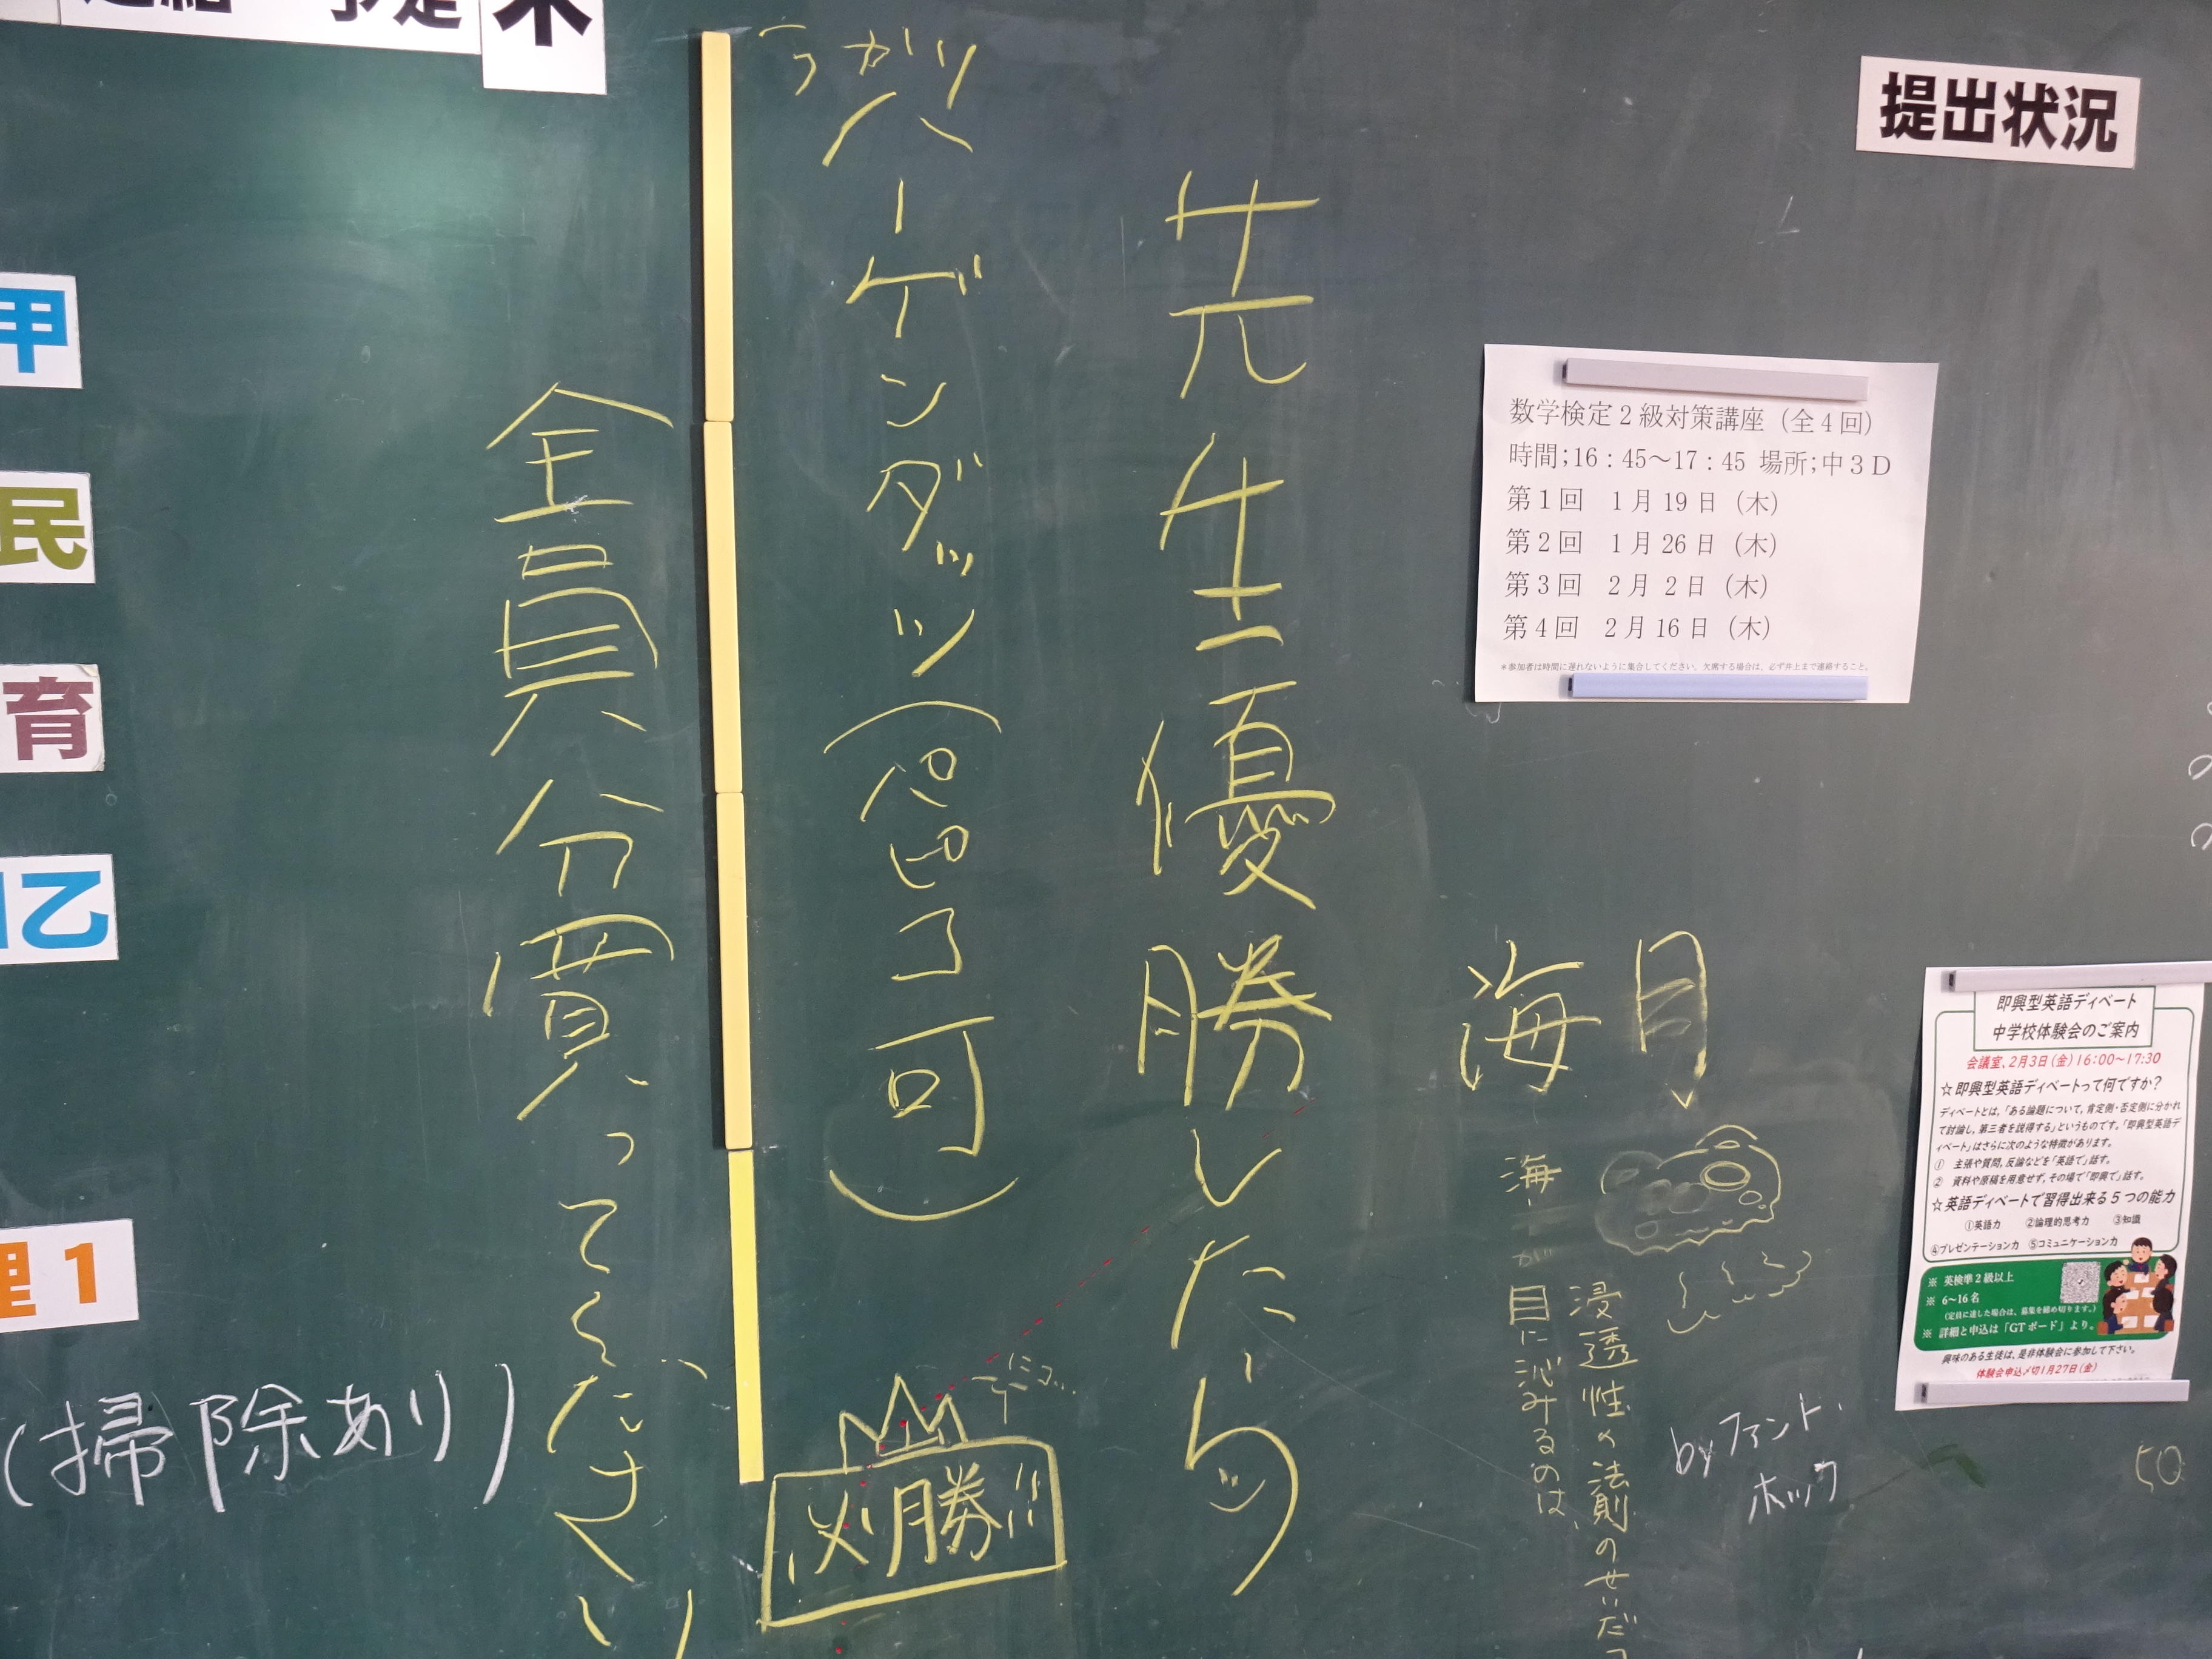 提出状況
木
甲
民
育
乙
理1
(掃除あり)
先生優勝したら
ハーゲンダッツ(ピノ可)
全員分買ってください
必勝!!
数学検定2級対策講座(全4回)
時間;16:45~17:45 場所;中3D
第1回 1月19日(木)
第2回 1月26日(木)
第3回 2月 2日(木)
第4回 2月16日(木)
*参加者は時間に遅れないように集合してください。欠席する場合は、必ず井上まで連絡すること。
海月
海が目に沁みるのは、
浸透性の法則のせいだっ
byファントホッフ
50
即興型英語ディベート
中学校体験会のご案内
会議室、2月3日(金)16:00~17:30
☆即興型英語ディベートって何ですか?
ディベートとは、「ある論題について、肯定側・否定側に分かれ
て討論し、第三者を説得する」というものです。「即興型英語デ
ィベート」はさらに次のような特徴があります。
① 主張や質問、反論などを「英語で」話す。
② 資料や原稿を用意せず、その場で「即興で」話す。
☆英語ディベートで習得出来る5つの能力
①英語力 ②論理的思考力 ③知識
④プレゼンテーション力 ⑤コミュニケーション力
※ 英検準2級以上
※ 6~16名
(定員に達した場合は、募集を締め切ります。)
※ 詳細と申込は「GTボード」より。
興味のある生徒は、是非体験会に参加して下さい。
体験会申込〆切1月27日(金)